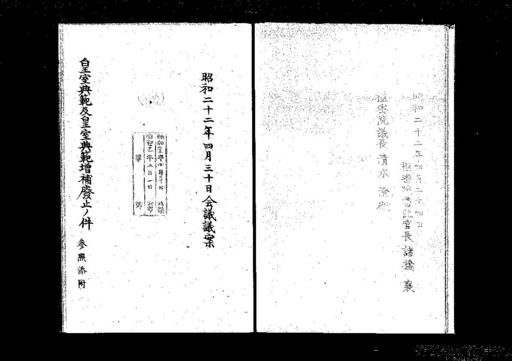 昭和二十二年四月二十四日
枢密院書記官長 諸橋 襄
枢密院議長 清水 澄殿
昭和二十二年四月三十日会議議案
皇室典範及皇室典範増補廃止ノ件 参照添附